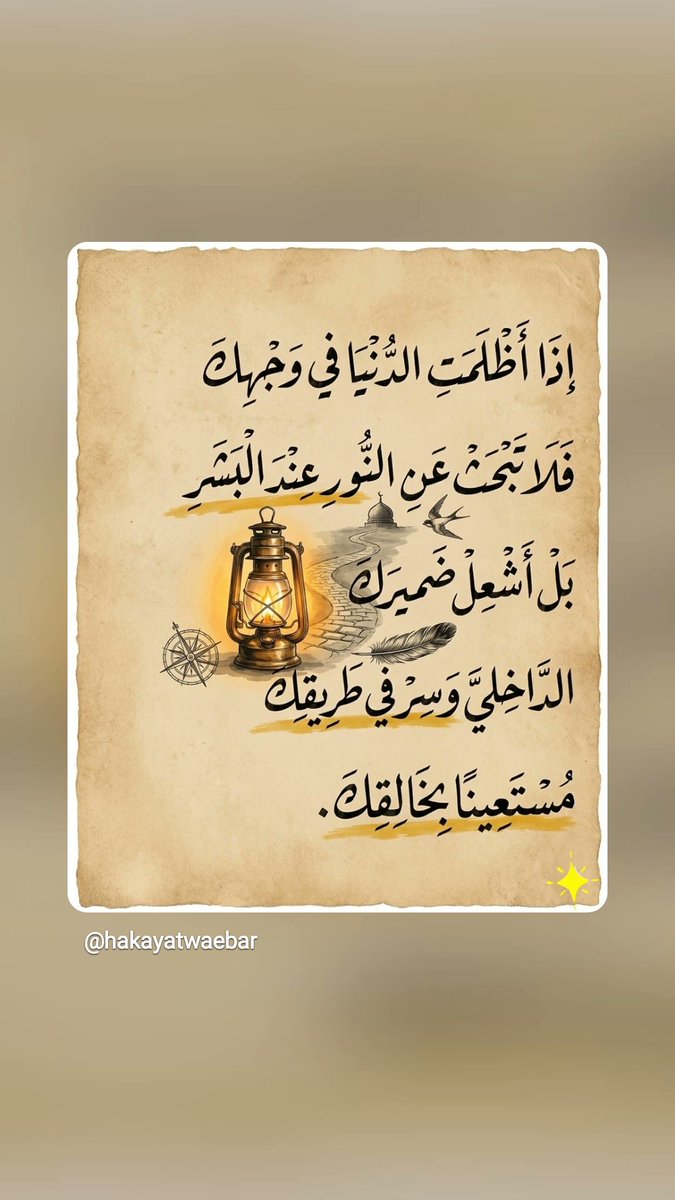 إِذَا أَظْلَمَتِ الدُّنْيَا فِي وَجْهِكَ
فَلَا تَبْحَثْ عَنِ النُّورِ عِنْدَ الْبَشَرِ
بَلْ أَشْعِلْ ضَمِيرَكَ
الدَّاخِلِيَّ وَسِرْ فِي طَرِيقِكَ
مُسْتَعِينًا بِخَالِقِكَ.
@hakayatwaebar